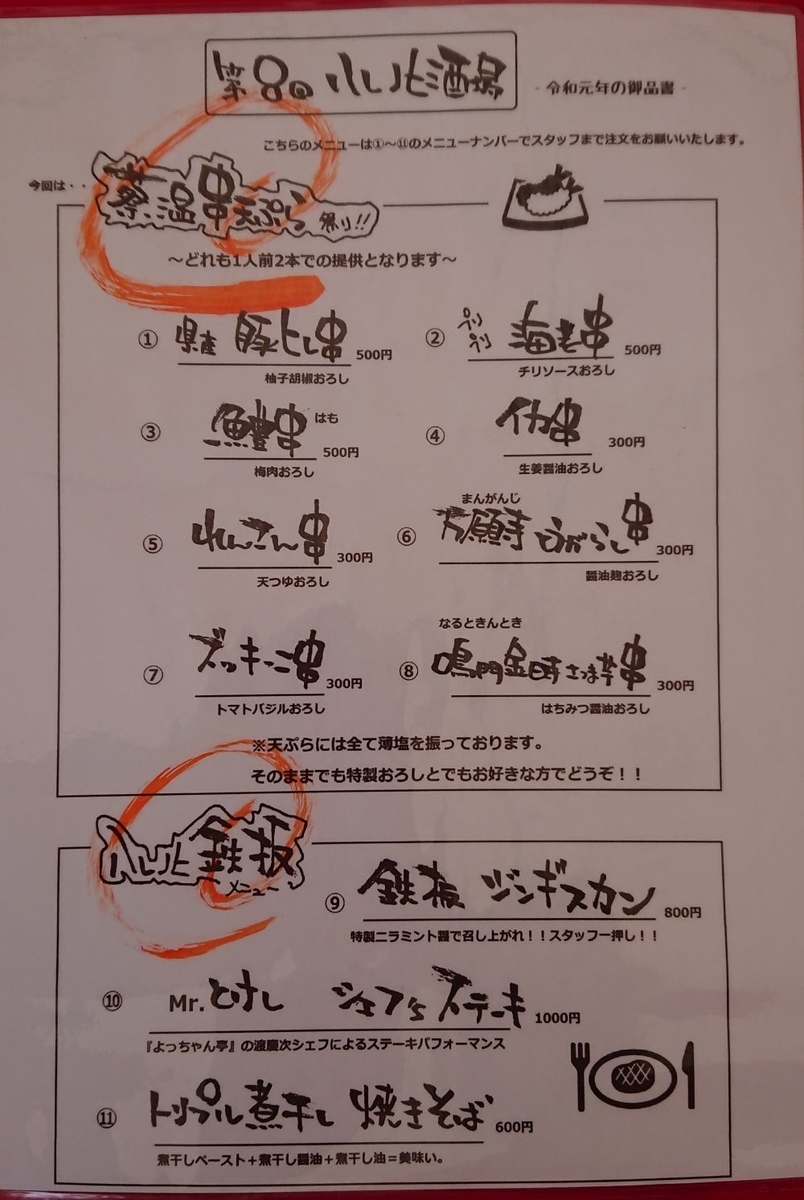 第8回 ハレルヒ酒場 -令和元年の御品書-
こちらのメニューは①～⑪のメニューナンバーでスタッフまで注文をお願いいたします。
今回は・・
串天ぷら 祭り!!
～どれも1人前2本での提供となります～
① 県産 豚ヒレ串 500円
柚子胡椒おろし
② プリプリ 海老串 500円
チリソースおろし
③ 鱧串 はも 500円
梅肉おろし
④ イカ串 300円
生姜醤油おろし
⑤ れんこん串 300円
天つゆおろし
まんがんじ
⑥ 万願寺とうがらし串 300円
醤油麹おろし
⑦ ズッキーニ串 300円
トマトバジルおろし
なるときんとき
⑧ 鳴門金時さつま芋串 300円
はちみつ醤油おろし
※天ぷらには全て薄塩を振っております。
そのままでも特製おろしとでもお好きな方でどうぞ！！
鉄板
メニュー
⑨ 鉄板 ジンギスカン 800円
特製ニラミント醤で召し上がれ！！スタッフ一押し！！
⑩ Mr.とけし シェフ's ステーキ 1000円
『よっちゃん亭』の渡慶次シェフによるステーキパフォーマンス
⑪ トリプル煮干し 焼きそば 600円
煮干しペースト＋煮干し醤油＋煮干し油＝美味い。